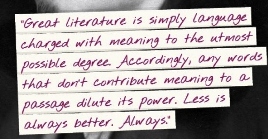 "Great literature is simply language
charged with meaning to the utmost
possible degree. Accordingly, any words
that don't contribute meaning to a
passage dilute its power. Less is
always better. Always."